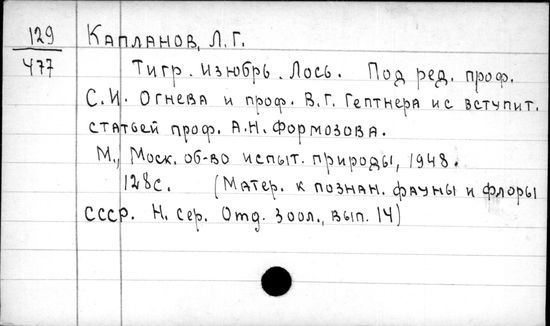 129 Капланов, Л.Г.
477 Тигр. Изюбрь. Лось. Под ред. проф.
С.И. Огнева и проф. В.Г. Гептнера и с вступит.
статьей проф. А.Н. Формозова.
М., Моск. об-во испыт. природы, 1948.
128с. (Матер. к познан. фауны и флоры
СССР. Н. сер. Отд. Зоол., вып. 14)